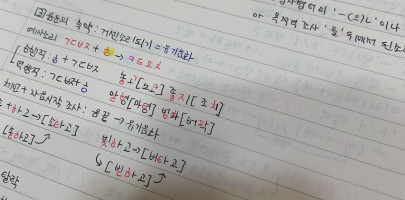 ③음운의 축약 : 거센소리되기 = 유기음화
예사소리 ㄱㄷㅂㅈ + ㅎ → ㅋㅌㅍㅊ
순행적 : ㅎ + ㄱㄷㅂㅈ 놓고[노코] 좋지[조치]
역행적 : ㄱㄷㅂㅈ+ㅎ 맏형[마텽] 법학[버팍]
체언 + 자음시작 조사 : 음끝 → 유기음화
하고→ 빛하고→[비타고]
↳[빋하고]
탈락
'-(으)ㄹ' 이나
or 목적격 조사 '을'